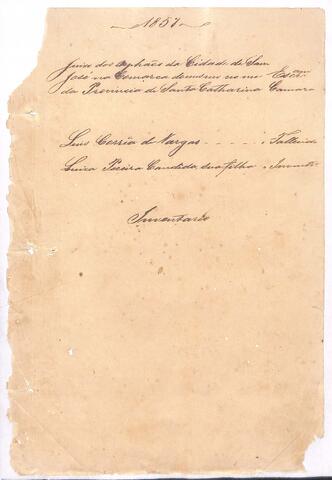 1857
Juizo dos Orphãos da Cidade de Sam
José na Comarca do mesmo nome Escr.am
da Provincia de Santa Catharina Camara
Luis Corrêa de Vargas - - - - . Fallecido
Luiza Pereira Candida sua filha . Invent.
Inventario